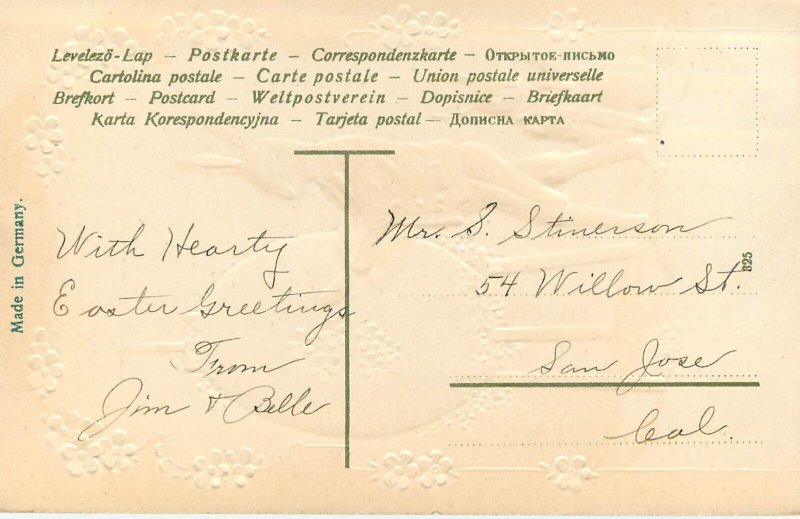 Levelező-Lap – Postkarte – Correspondenzkarte – Открытое-письмо
Cartolina postale – Carte postale – Union postale universelle
Brefkort – Postcard – Weltpostverein – Dopisnice – Briefkaart
Karta Korespondencyjna – Tarjeta postal – Дописна карта
Made in Germany.
With Hearty
Easter Greetings
From
Jim & Belle
Mr. S. Stinerson
54 Willow St.
325
San Jose
Cal.